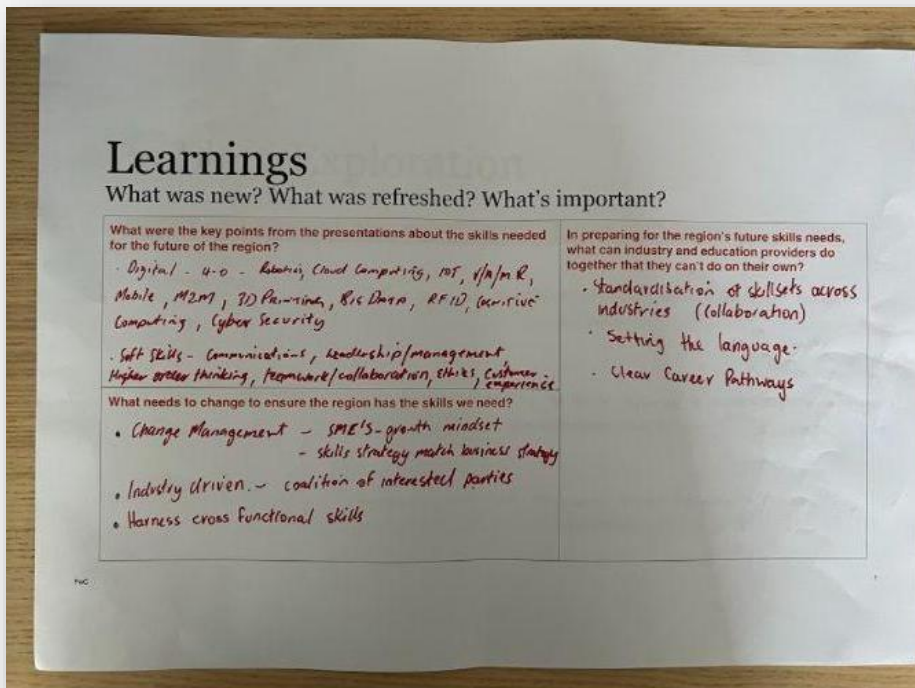 Learnings
What was new? What was refreshed? What's important?
What were the key points from the presentations about the skills needed
for the future of the region?
· Digital - 4-0 - Robotics, Cloud Computing, IOT, V/A/M R,
Mobile, M2M, 3D Printing, Big Data, RFID, Cognitive
Computing, Cyber Security
· Soft Skills - Communications, Leadership/management,
Higher order thinking, teamwork/collaboration, Ethics, Customer
experience
What needs to change to ensure the region has the skills we need?
• Change Management - SME'S - growth mindset
- skills strategy match business strategy
• Industry driven - coalition of interested parties
• Harness cross functional skills
In preparing for the region's future skills needs,
what can industry and education providers do
together that they can't do on their own?
· Standardisation of skillsets across
industries (collaboration)
· Setting the language.
· Clear Career Pathways
PwC